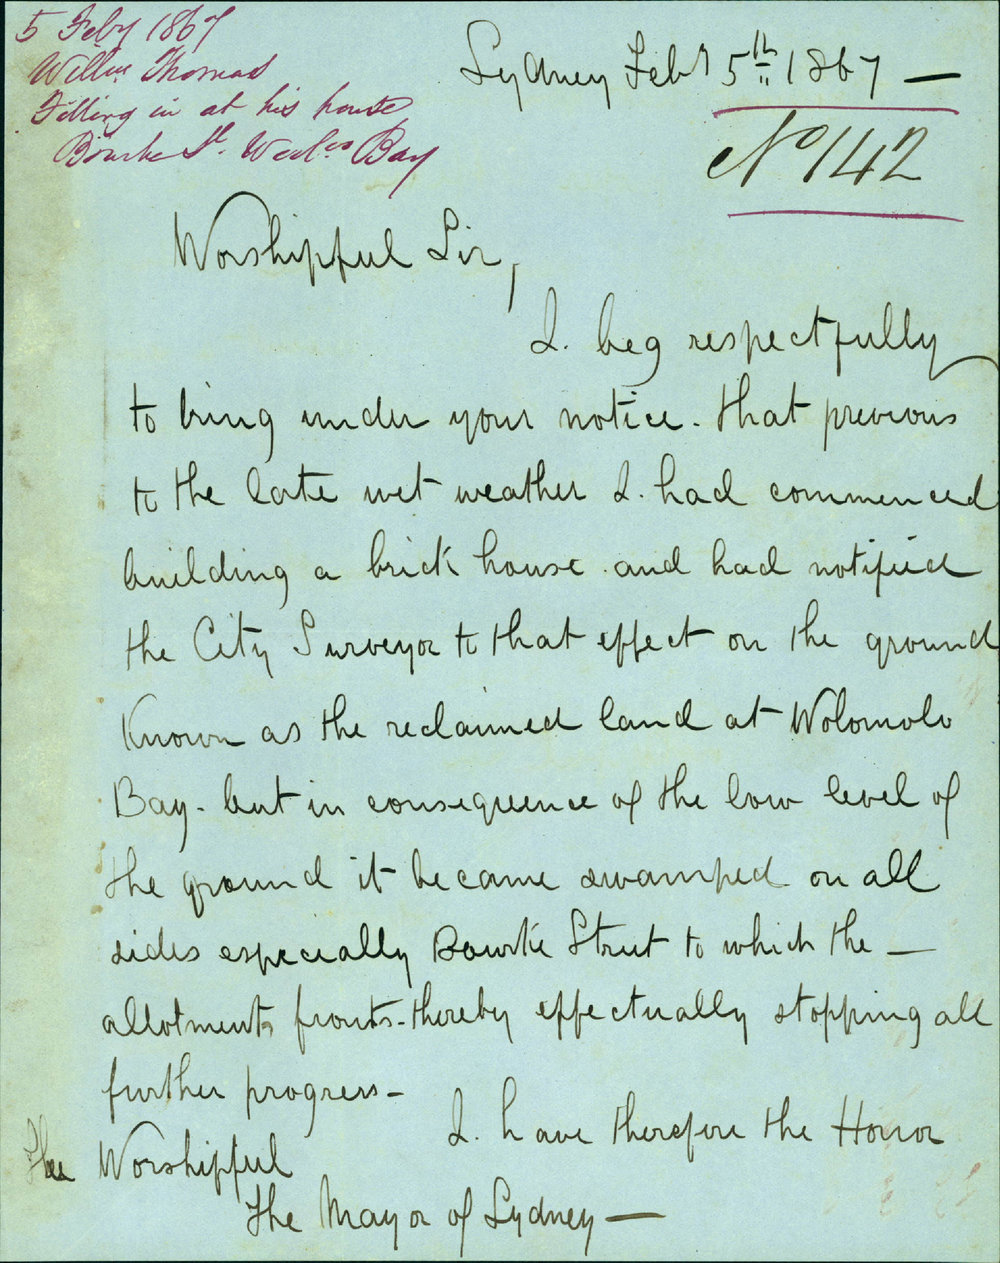 5 Feby 1867
Willm Thomas
Filling in at his house
Bourke St. Wool.oo Bay
Sydney Feby 5th 1867 —
No 142
Worshipful Sir,
I. beg respectfully
to bring under your notice. that previous
to the late wet weather I. had commenced
building a brick house. and had notified
the City Surveyor to that effect on the ground
Known as the reclaimed land at Wolomolo
Bay - but in consequence of the low level of
the ground it became swamped on all
sides especially Bourke Street to which the —
allotments fronts - thereby effectually stopping all
further progress -
I. have therefore the Honor
The Worshipful
The Mayor of Sydney —